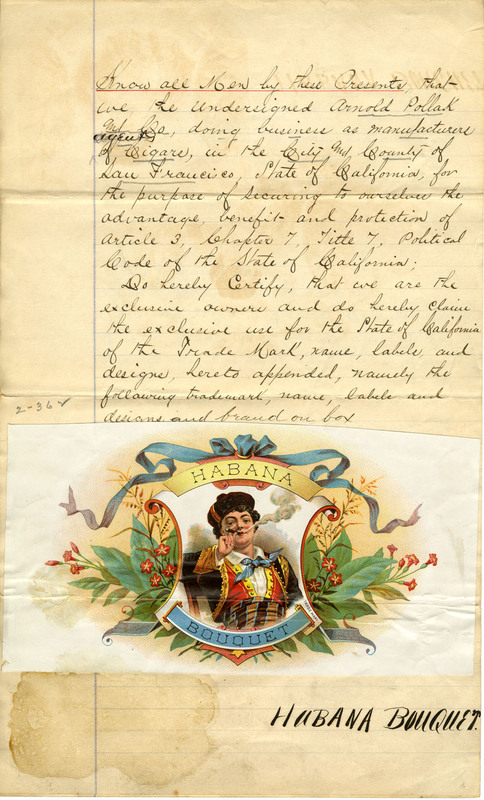 Know all Men by these Presents, that
we, the undersigned Arnold Pollak
and Co, doing business as manufacturers
agents
of Cigars, in the City and County of
San Francisco, State of California, for
the purpose of securing to ourselves the
advantage, benefit and protection of
Article 3, Chapter 7, Title 7, Political
Code of the State of California;
Do hereby Certify, that we are the
exclusive owners and do hereby claim
the exclusive use for the State of California
of the Trade Mark, name, labels, and
designs, hereto appended, namely the
following trademark, name, labels and
designs and brand on box
HABANA
BOUQUET
HABANA BOUQUET.